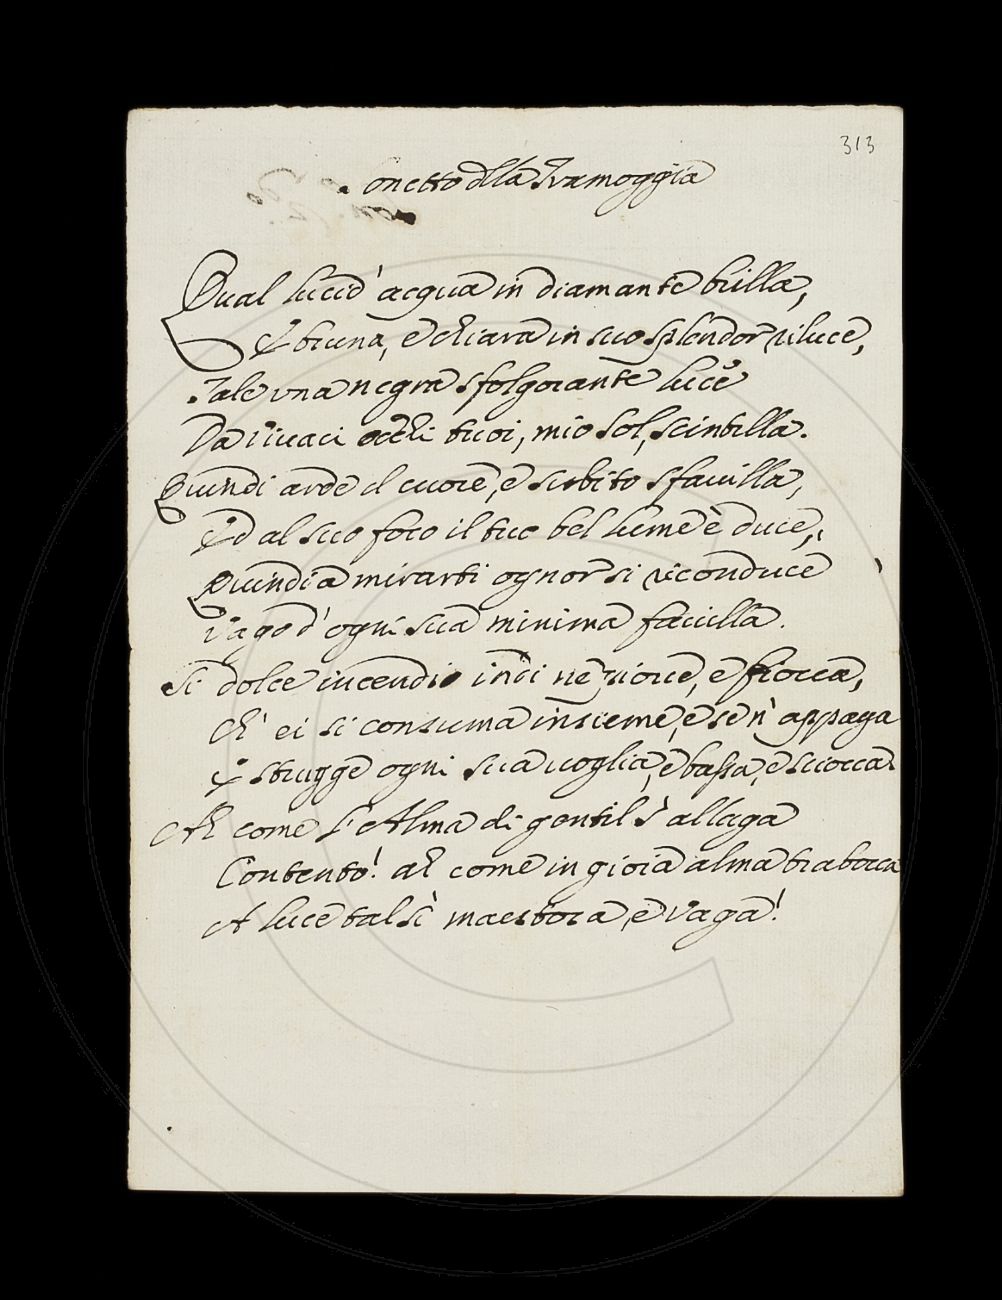 313
Sonetto della Tramoggia
Qual lucid' acqua in diamante brilla,
E bruna, e chiara in suo splendor riluce,
Tale una negra sfolgorante luce
Da vivaci occhi tuoi, mio sol, scintilla.
Quindi arde il cuore, e subito sfavilla,
Ed al suo foco il tuo bel lume è duce,
Quindi a mirarti ognor si riconduce
Vago d' ogni sua minima favilla.
Si dolce incendio indi ne
ch' ei si consuma insieme, e se n' appaga
E strugge ogni sua voglia, e bassa, e sciocca.
Ah come l' Alma di gentil s' allaga
Contento! ah come in gioia alma trabocca
A luce tal sì maestosa, e vaga!